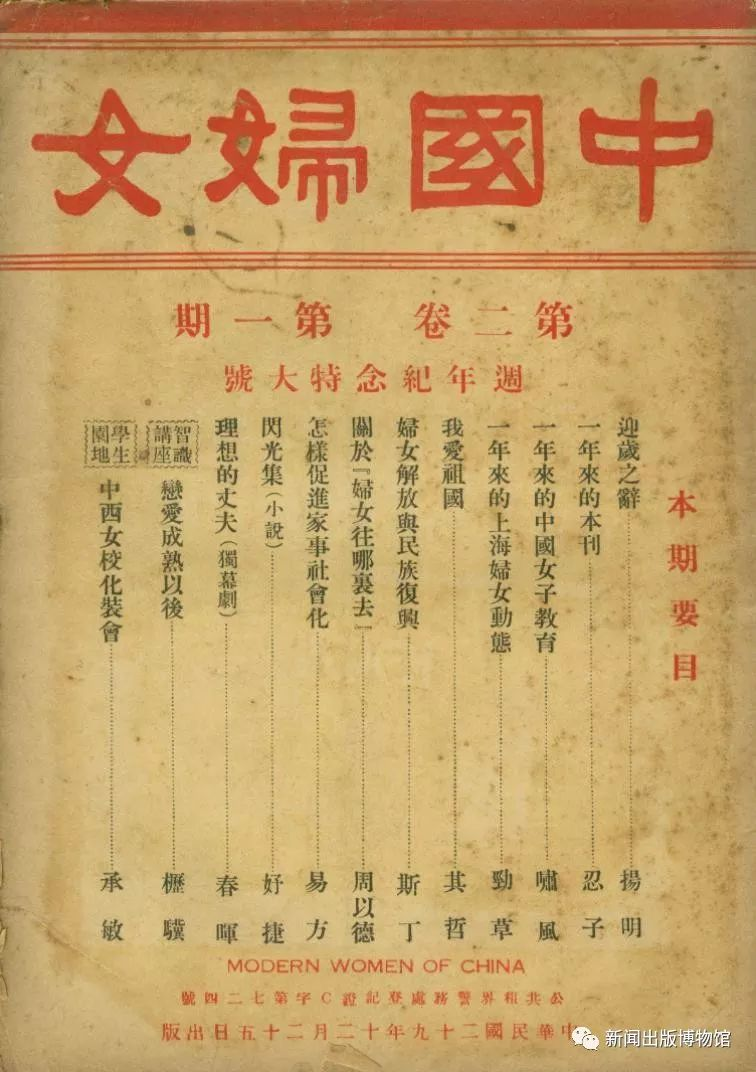 中國婦女
第二卷 第一期
週年紀念特大號
本期要目
迎歲之辭 揚明
一年來的本刊 忍子
一年來的中國女子教育 嘯風
一年來的上海婦女動態 勁草
我愛祖國 其哲
婦女解放與民族復興 斯丁
關於『婦女往哪裏去』 周以德
怎樣促進家事社會化 易方
閃光集（小說） 妤捷
理想的丈夫（獨幕劇） 春暉
智識講座 戀愛成熟以後 櫪驥
學生園地 中西女校化裝會 承敏
MODERN WOMEN OF CHINA
公共租界警務處登記證C字第七二四號
中華民國二十九年十二月二十五日出版
新闻出版博物馆